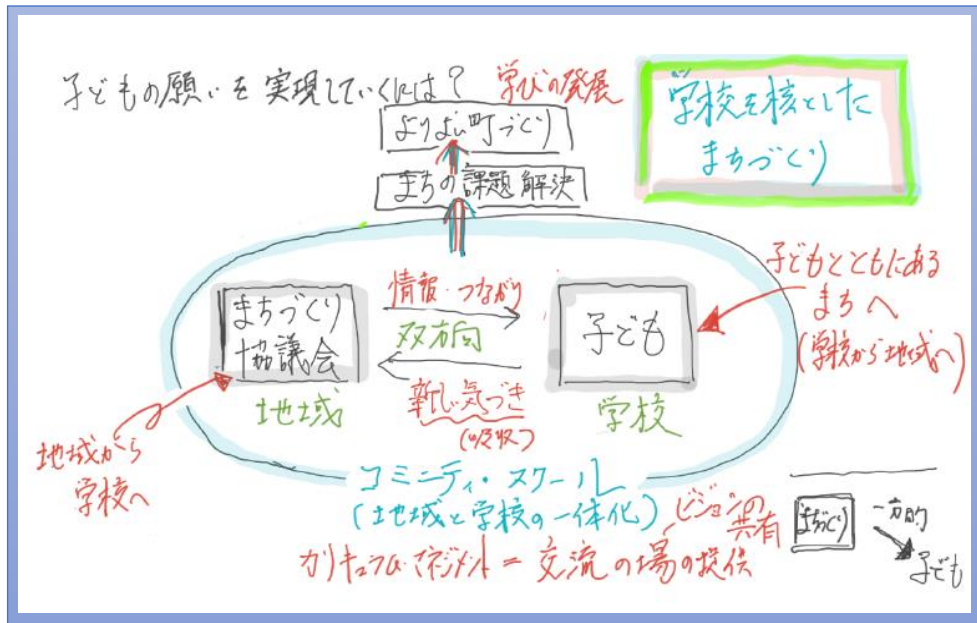 子どもの願いを実現していくには?
学びの発展
よりよい町づくり
まちの課題解決
学校を核とした
まちづくり
情報・つながり
双方向
新しい気づき
(吸収)
まちづくり
協議会
地域
子ども
学校
子どもとともにある
まちへ
(学校から地域へ)
地域から
学校へ
コミニティ・スクール
(地域と学校の一体化)
ビジョンの
共有
カリキュラム・マネジメント = 交流の場の提供
まちづくり
一方的
子ども